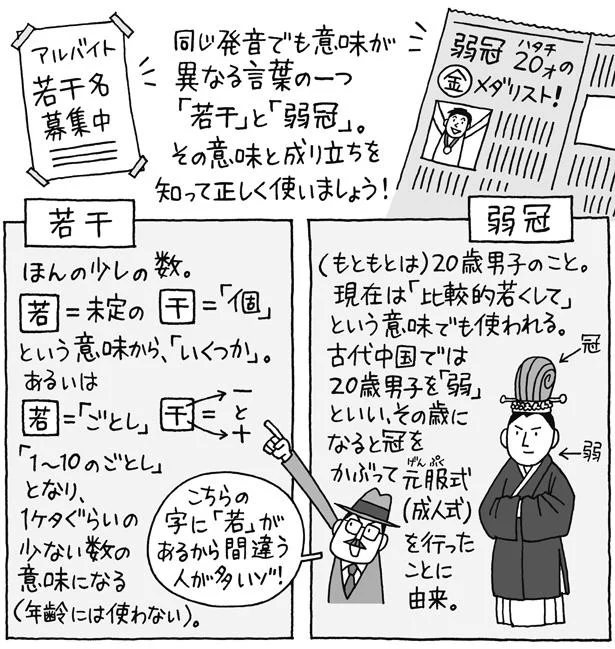 アルバイト
若干名
募集中
同じ発音でも意味が
異なる言葉の一つ
「若干」と「弱冠」。
その意味と成り立ちを
知って正しく使いましょう!
弱冠20才の
ハタチ
金メダリスト!
若干
ほんの少しの数。
若=未定の 干=「個」
という意味から、「いくつか」。
あるいは
若=「ごとし」 干=一と十
「1〜10のごとし」
となり、
1ケタぐらいの
少ない数の
意味になる
(年齢には使わない)。
こちらの
字に「若」が
あるから間違う
人が多いゾ!
弱冠
(もともとは)20歳男子のこと。
現在は「比較的若くして」
という意味でも使われる。
古代中国では
20歳男子を「弱」
といい、その歳に
なると冠を
かぶって元服式
げんぷく
(成人式)
を行った
ことに
由来。
冠
弱